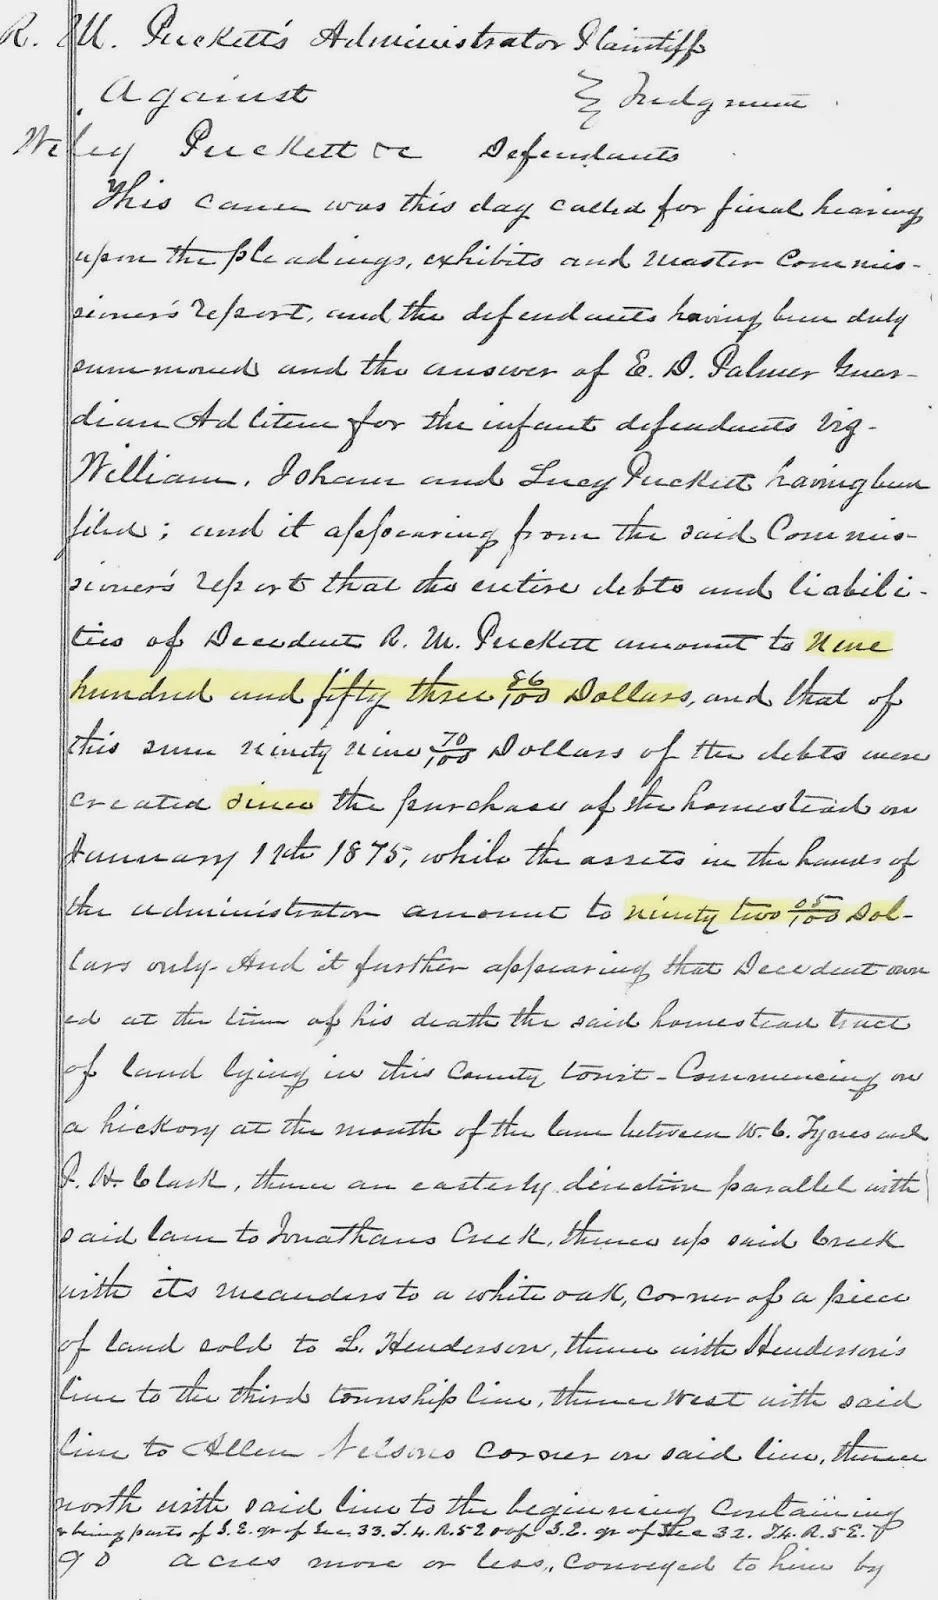 R. M. Puckett's Administrator Plaintiff
Against } Judgment
Wiley Puckett &c Defendants
This cause was this day called for final hearing
upon the pleadings, exhibits and Master Commis-
sioner's report, and the defendants having been duly
summoned and the answer of E. D. Palmer Guar-
dian Ad litem for the infant defendants viz-
William, Johann and Lucy Puckett having been
filed; and it appearing from the said Commis-
sioner's report that the entire debts and liabili-
ties of Decedent R. M. Puckett amount to Nine
hundred and fifty three 86/100 Dollars, and that of
this sum ninety nine 70/100 Dollars of the debts were
created since the purchase of the homestead on
January 12th 1875, while the assets in the hands of
the administrator amount to ninety two 05/100 Dol-
lars only. And it further appearing that Decedent own
ed at the time of his death the said homestead tract
of land lying in this County towit - Commencing on
a hickory at the mouth of the lane between W. C. Tynes and
P. H. Clark, thence an easterly direction parallel with
said lane to Jonathans Creek, thence up said Creek
with its meanders to a white oak, corner of a piece
of land sold to L. Henderson, thence with Henderson's
line to the third township line, thence West with said
line to Allen Nelsons corner on said line, thence
north with said line to the beginning containing
& being parts of S.E. qr of Sec 33. T.4. R.5 E of S.E. qr of Sec 32. T4. R.5 E.
90 acres more or less, conveyed to him by